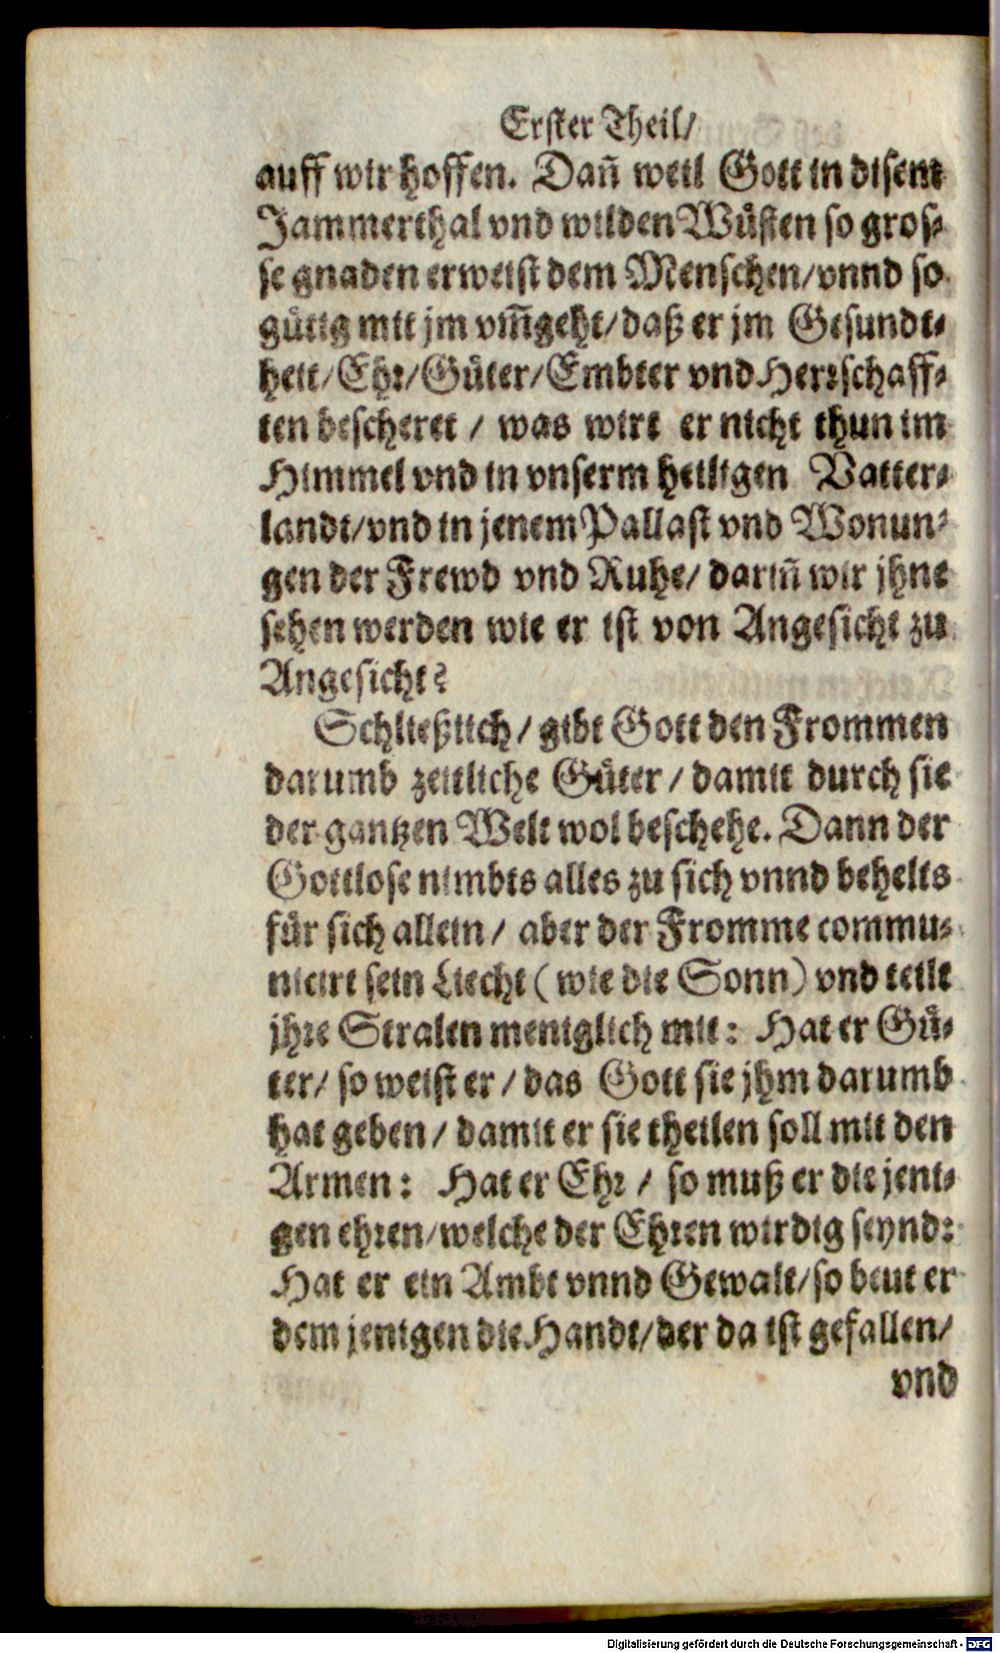 Erster Theil/
auff wir hoffen. Dañ weil Gott in disem
Jammerthal vnd wilden Wüsten so gros-
se gnaden erweist dem Menschen/vnnd so
gütig mit jm vm̃geht/daß er jm Gesundt-
heit/Ehr/Güter/Embter vnd Herrschaff-
ten bescheret / was wirt er nicht thun im
Himmel vnd in vnserm heiligen Vatter-
landt/vnd in jenem Pallast vnd Wonun-
gen der Frewd vnd Ruhe/ dariñ wir jhne
sehen werden wie er ist von Angesicht zu
Angesicht?
Schließlich/ gibt Gott den Frommen
darumb zeitliche Güter/ damit durch sie
der gantzen Welt wol beschehe. Dann der
Gottlose nimbts alles zu sich vnnd behelts
für sich allein/ aber der Fromme commu-
nicirt sein Liecht (wie die Sonn) vnd teilt
jhre Stralen meniglich mit: Hat er Gü-
ter/ so weist er/ das Gott sie jhm darumb
hat geben/ damit er sie theilen soll mit den
Armen: Hat er Ehr/ so muß er die jeni-
gen ehren/welche der Ehren wirdig seynd:
Hat er ein Ambt vnnd Gewalt/so beut er
dem jenigen die Handt/der da ist gefallen/
vnd
Digitalisierung gefördert durch die Deutsche Forschungsgemeinschaft - DFG